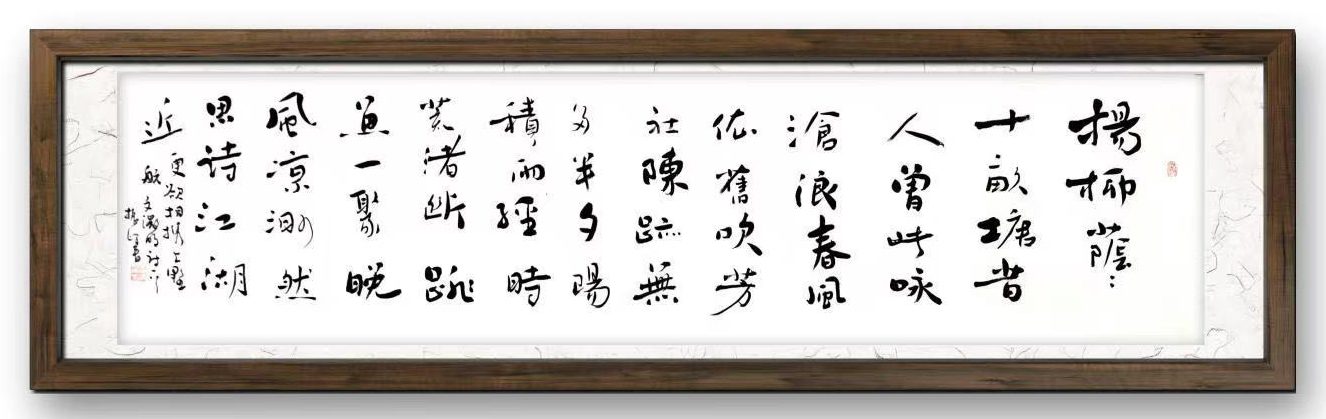 楊柳蔭〻
十畝塘昔
人曾此咏
滄浪春風
依舊吹芳
杜陳跡無
多半夕陽
積雨經時
荒渚斷跳
魚一聚晚
風凉渺然
思诗江湖
近
更欲相携上野
航 文徵明诗
書